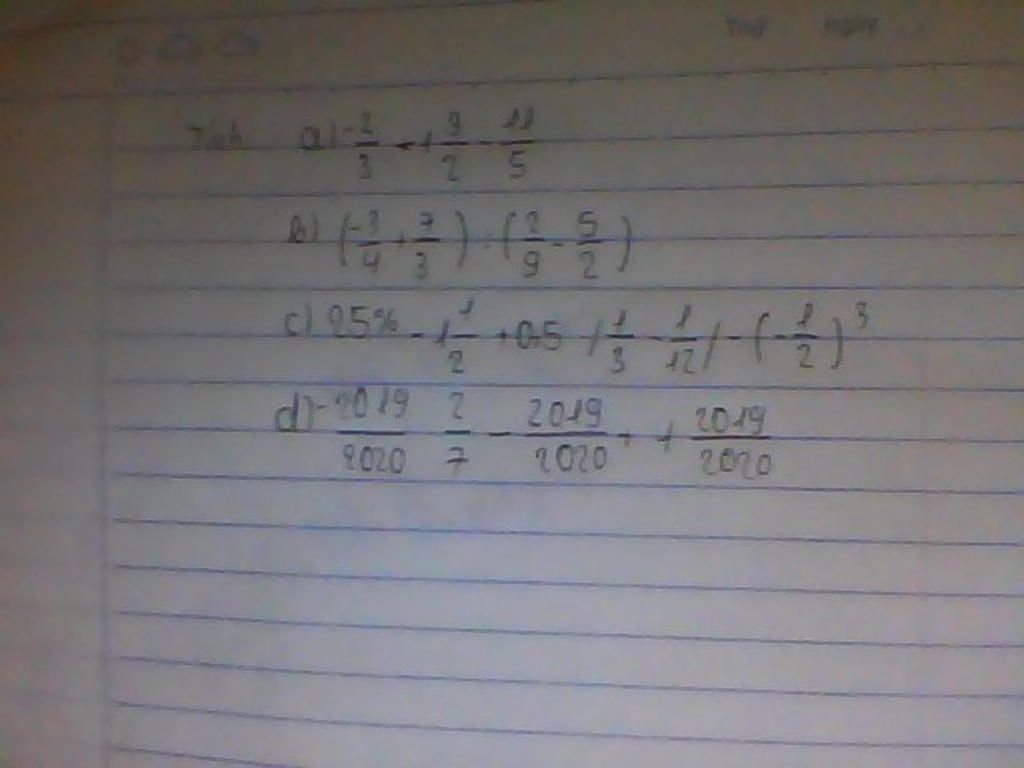 Thứ ngày
Tính a) -2/3 + 9/2 - 11/5
b) (-3/4 + 7/3) : (2/9 - 5/2)
c) 25% - 1 1/2 + 0.5 / 1/3 - 1/12 / - (-1/2)^3
d) -2019/2020 2/7 - 2019/2020 + 2019/2020